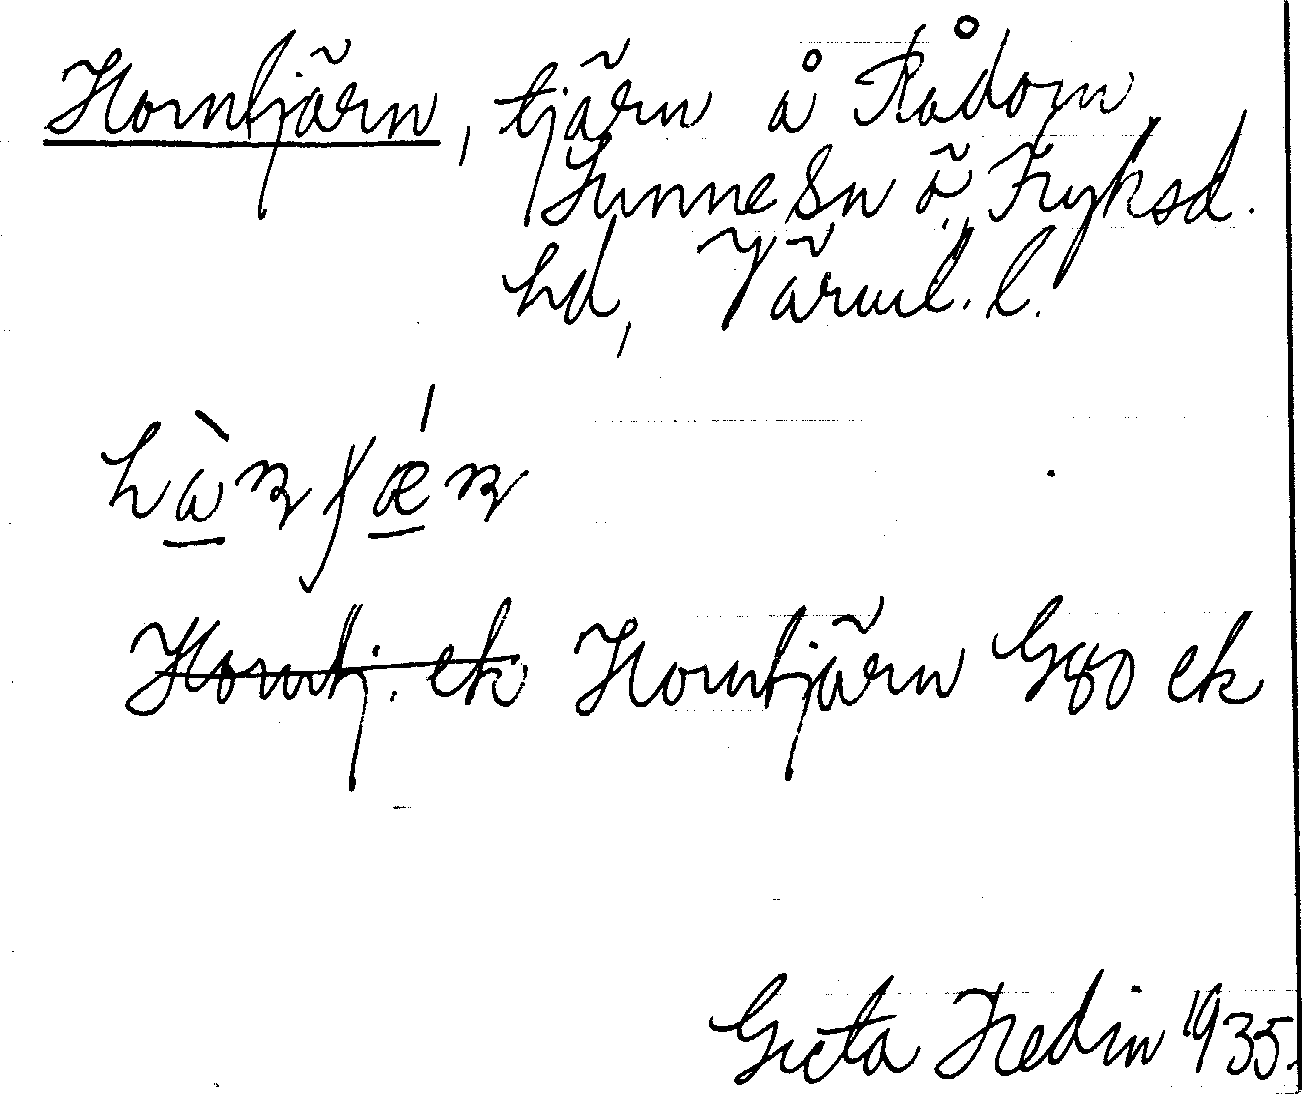 Horntjärn, tjärn å Rådom
Sunne Sn Ö. Fryksd.
hd, Värml. l.
Horntj. ek Horntjärn Gqo ek
Greta Hedin 1935.